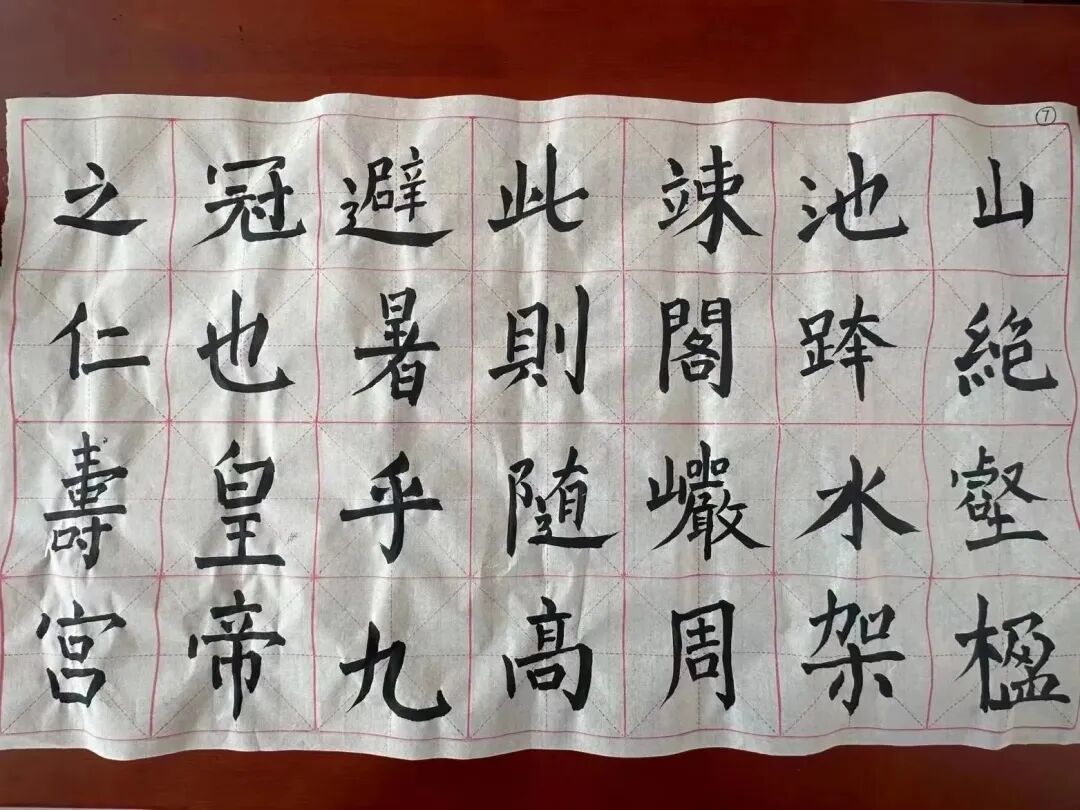 ⑦
山絶壑楹
池跨水架
竦閣巗周
此則随髙
避暑乎九
冠也皇帝
之仁壽宮